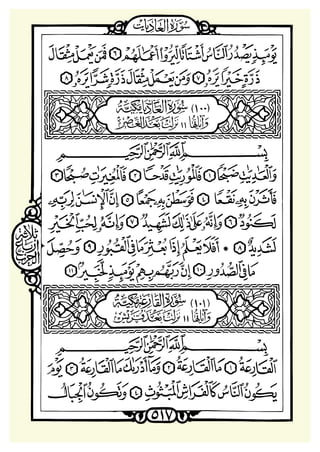 سُورَةُ العَادِيَات
يَوْمَئِذٍ يَصْدُرُ ٱلنَّاسُ أَشْتَاتًا لِّيُرَوْا۟ أَعْمَٰلَهُمْ ٦ فَمَن يَعْمَلْ مِثْقَالَ
ذَرَّةٍ خَيْرًا يَرَهُۥ ٧ وَمَن يَعْمَلْ مِثْقَالَ ذَرَّةٍ شَرًّا يَرَهُۥ ٨
(١٠٠) سُورَةُ العَادِيَات مَكِّيَّة
وَآيَاتُهَا ١١ نَزَلَتْ بَعْدَ العَصْرِ
بِسْمِ ٱللَّهِ ٱلرَّحْمَٰنِ ٱلرَّحِيمِ
وَٱلْعَٰدِيَٰتِ ضَبْحًا ١ فَٱلْمُورِيَٰتِ قَدْحًا ٢ فَٱلْمُغِيرَٰتِ صُبْحًا ٣
فَأَثَرْنَ بِهِۦ نَقْعًا ٤ فَوَسَطْنَ بِهِۦ جَمْعًا ٥ إِنَّ ٱلْإِنسَٰنَ لِرَبِّهِۦ
لَكَنُودٌ ٦ وَإِنَّهُۥ عَلَىٰ ذَٰلِكَ لَشَهِيدٌ ٧ وَإِنَّهُۥ لِحُبِّ ٱلْخَيْرِ
لَشَدِيدٌ ٨ * أَفَلَا يَعْلَمُ إِذَا بُعْثِرَ مَا فِى ٱلْقُبُورِ ٩ وَحُصِّلَ
مَا فِى ٱلصُّدُورِ ١٠ إِنَّ رَبَّهُم بِهِمْ يَوْمَئِذٍ لَّخَبِيرٌۢ ١١
ثلاثة أرباع الحزب
(١٠١) سُورَةُ القَارِعَة مَكِّيَّة
وَآيَاتُهَا ١١ نَزَلَتْ بَعْدَ قُرَيْش
بِسْمِ ٱللَّهِ ٱلرَّحْمَٰنِ ٱلرَّحِيمِ
ٱلْقَارِعَةُ ١ مَا ٱلْقَارِعَةُ ٢ وَمَآ أَدْرَىٰكَ مَا ٱلْقَارِعَةُ ٣ يَوْمَ
يَكُونُ ٱلنَّاسُ كَٱلْفَرَاشِ ٱلْمَبْثُوثِ ٤ وَتَكُونُ ٱلْجِبَالُ
٥١٧